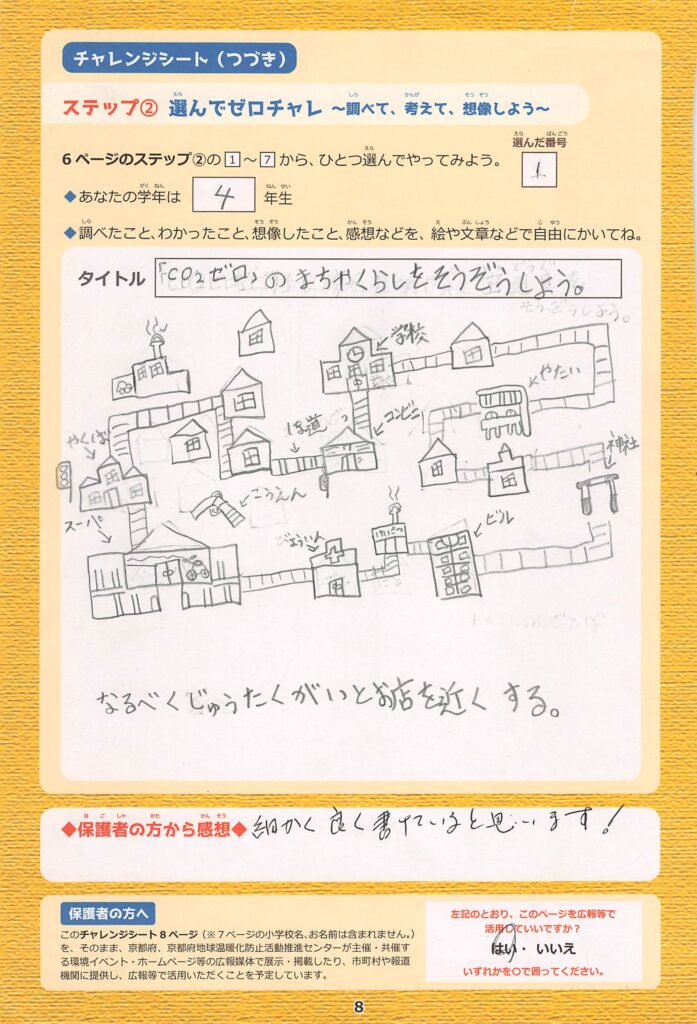 チャレンジシート（つづき）
ステップ② 選んでゼロチャレ ～調べて、考えて、想像しよう～
6ページのステップ②の1～7から、ひとつ選んでやってみよう。
選んだ番号
1
◆あなたの学年は 4 年生
◆調べたこと、わかったこと、想像したこと、感想などを、絵や文章などで自由にかいてね。
タイトル 「CO2ゼロ」のまちやくらしをそうぞうしよう。
学校
やたい
コンビニ
ほ道
やくば
神社
こうえん
スーパ
びょういん
けいさつ
ビル
なるべくじゅうたくがいとお店を近くする。
◆保護者の方から感想◆ 細かく良く書けていると思います！
保護者の方へ
このチャレンジシート8ページ（※7ページの小学校名、お名前は含まれません。）
を、そのまま、京都府、京都府地球温暖化防止活動推進センターが主催・共催す
る環境イベント・ホームページ等の広報媒体で展示・掲載したり、市町村や報道
機関に提供し、広報等で活用いただくことを予定しています。
左記のとおり、このページを広報等で
活用していいですか？
はい・いいえ
いずれかを○で囲ってください。
8